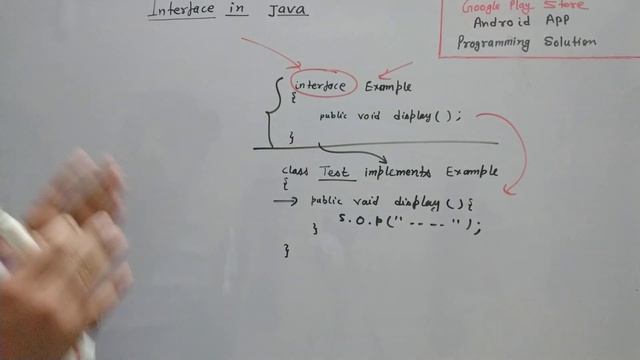 Interface in Java
Google Play Store
Android App
Programming Solution
interface Example
{
public void display();
}
class Test implements Example
{
public void display(){
S.O.P("----");
}
}